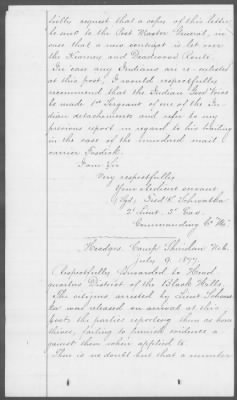 fully request that a copy of this letter
be sent to the Post Master General, in
case that a new contract is let over
the Kearney and Deadwood Route.
In case any Indians are re-enlisted
at this post, I would respectfully
recommend that the Indian Good Voice
be made 1st Sergeant of one of the In-
dian detachments and refer to my
previous report in regard to his trailing
in the case of the murdered mail
carrier Fosdick.
I am Sir
Very respectfully
Your obedient servant
Sgd, Fred'k Schwatka
2' Lieut. 3' Cav.
Commanding Co
Headqrs. Camp Sheridan Neb.
July 9, 1877
Respectfully forwarded to Head
quarters District of the Black Hills.
The citizens arrested by Lieut Schwat
ka was released on arrival at this
post, the parties reporting them as horse
thieves, failing to furnish evidence a
gainst them when applied to.
There is no doubt but that a number